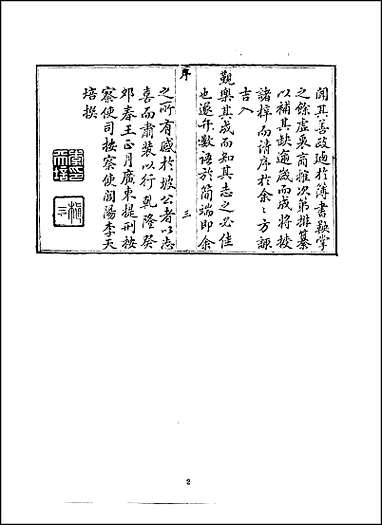 聞其善政廼於簿書鞅掌
之餘虛衷商榷次第排纂
以補其缺逾歲而成將授
諸梓而請序於余〻方諏
吉入
覲樂其成而知其志之必佳
也遂弁數語於簡端即余
序 三
之所有感於坡公者以志
喜而肅裝以行乾隆癸
邜春王正月廣東提刑按
察使司按察使閭陽李天
培撰
2